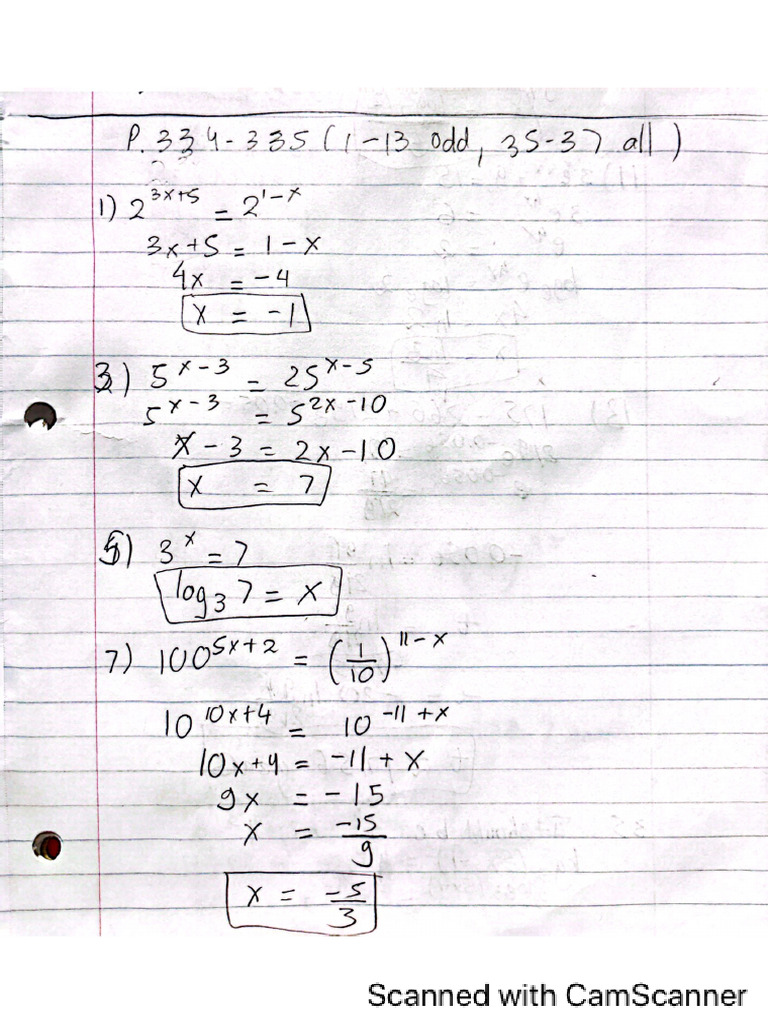 P. 334-335 (1-13 odd, 35-37 all)
1) 2^(3x+5) = 2^(1-x)
3x+5 = 1-x
4x = -4
x = -1
3) 5^(x-3) = 25^(x-5)
5^(x-3) = 5^(2x-10)
x-3 = 2x-10
x = 7
5) 3^x = 7
log₃7 = x
7) 100^(5x+2) = (1/10)^(11-x)
10^(10x+4) = 10^(-11+x)
10x+4 = -11+x
9x = -15
x = -15/9
x = -5/3
Scanned with CamScanner